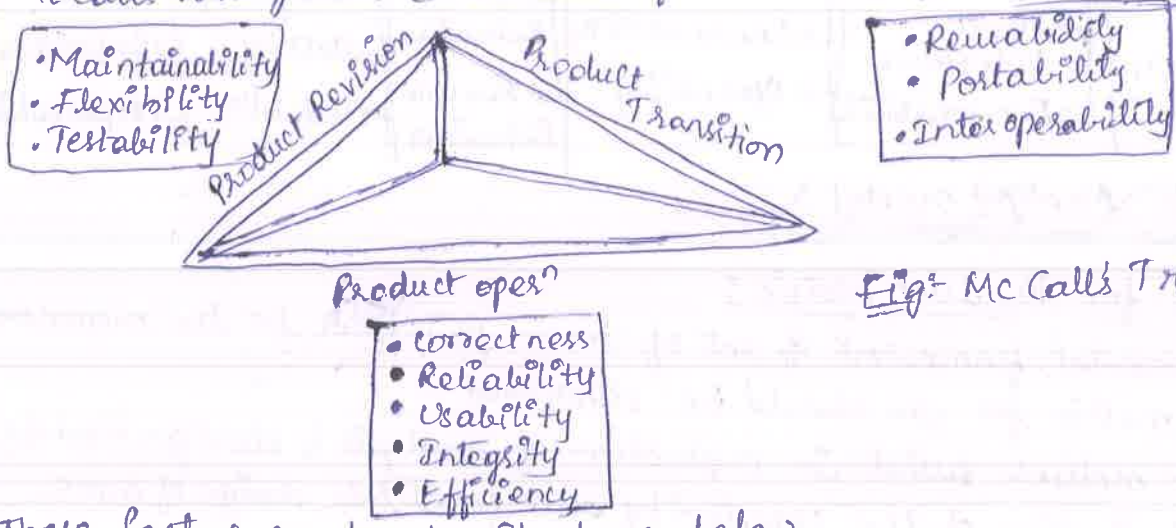 • Maintainability
• Flexibility
• Testability
Product Revision
Product
Transition
• Reusability
• Portability
• Interoperability
Product opern
Fig:- Mc Call's
• Correctness
• Reliability
• Usability
• Integrity
• Efficiency